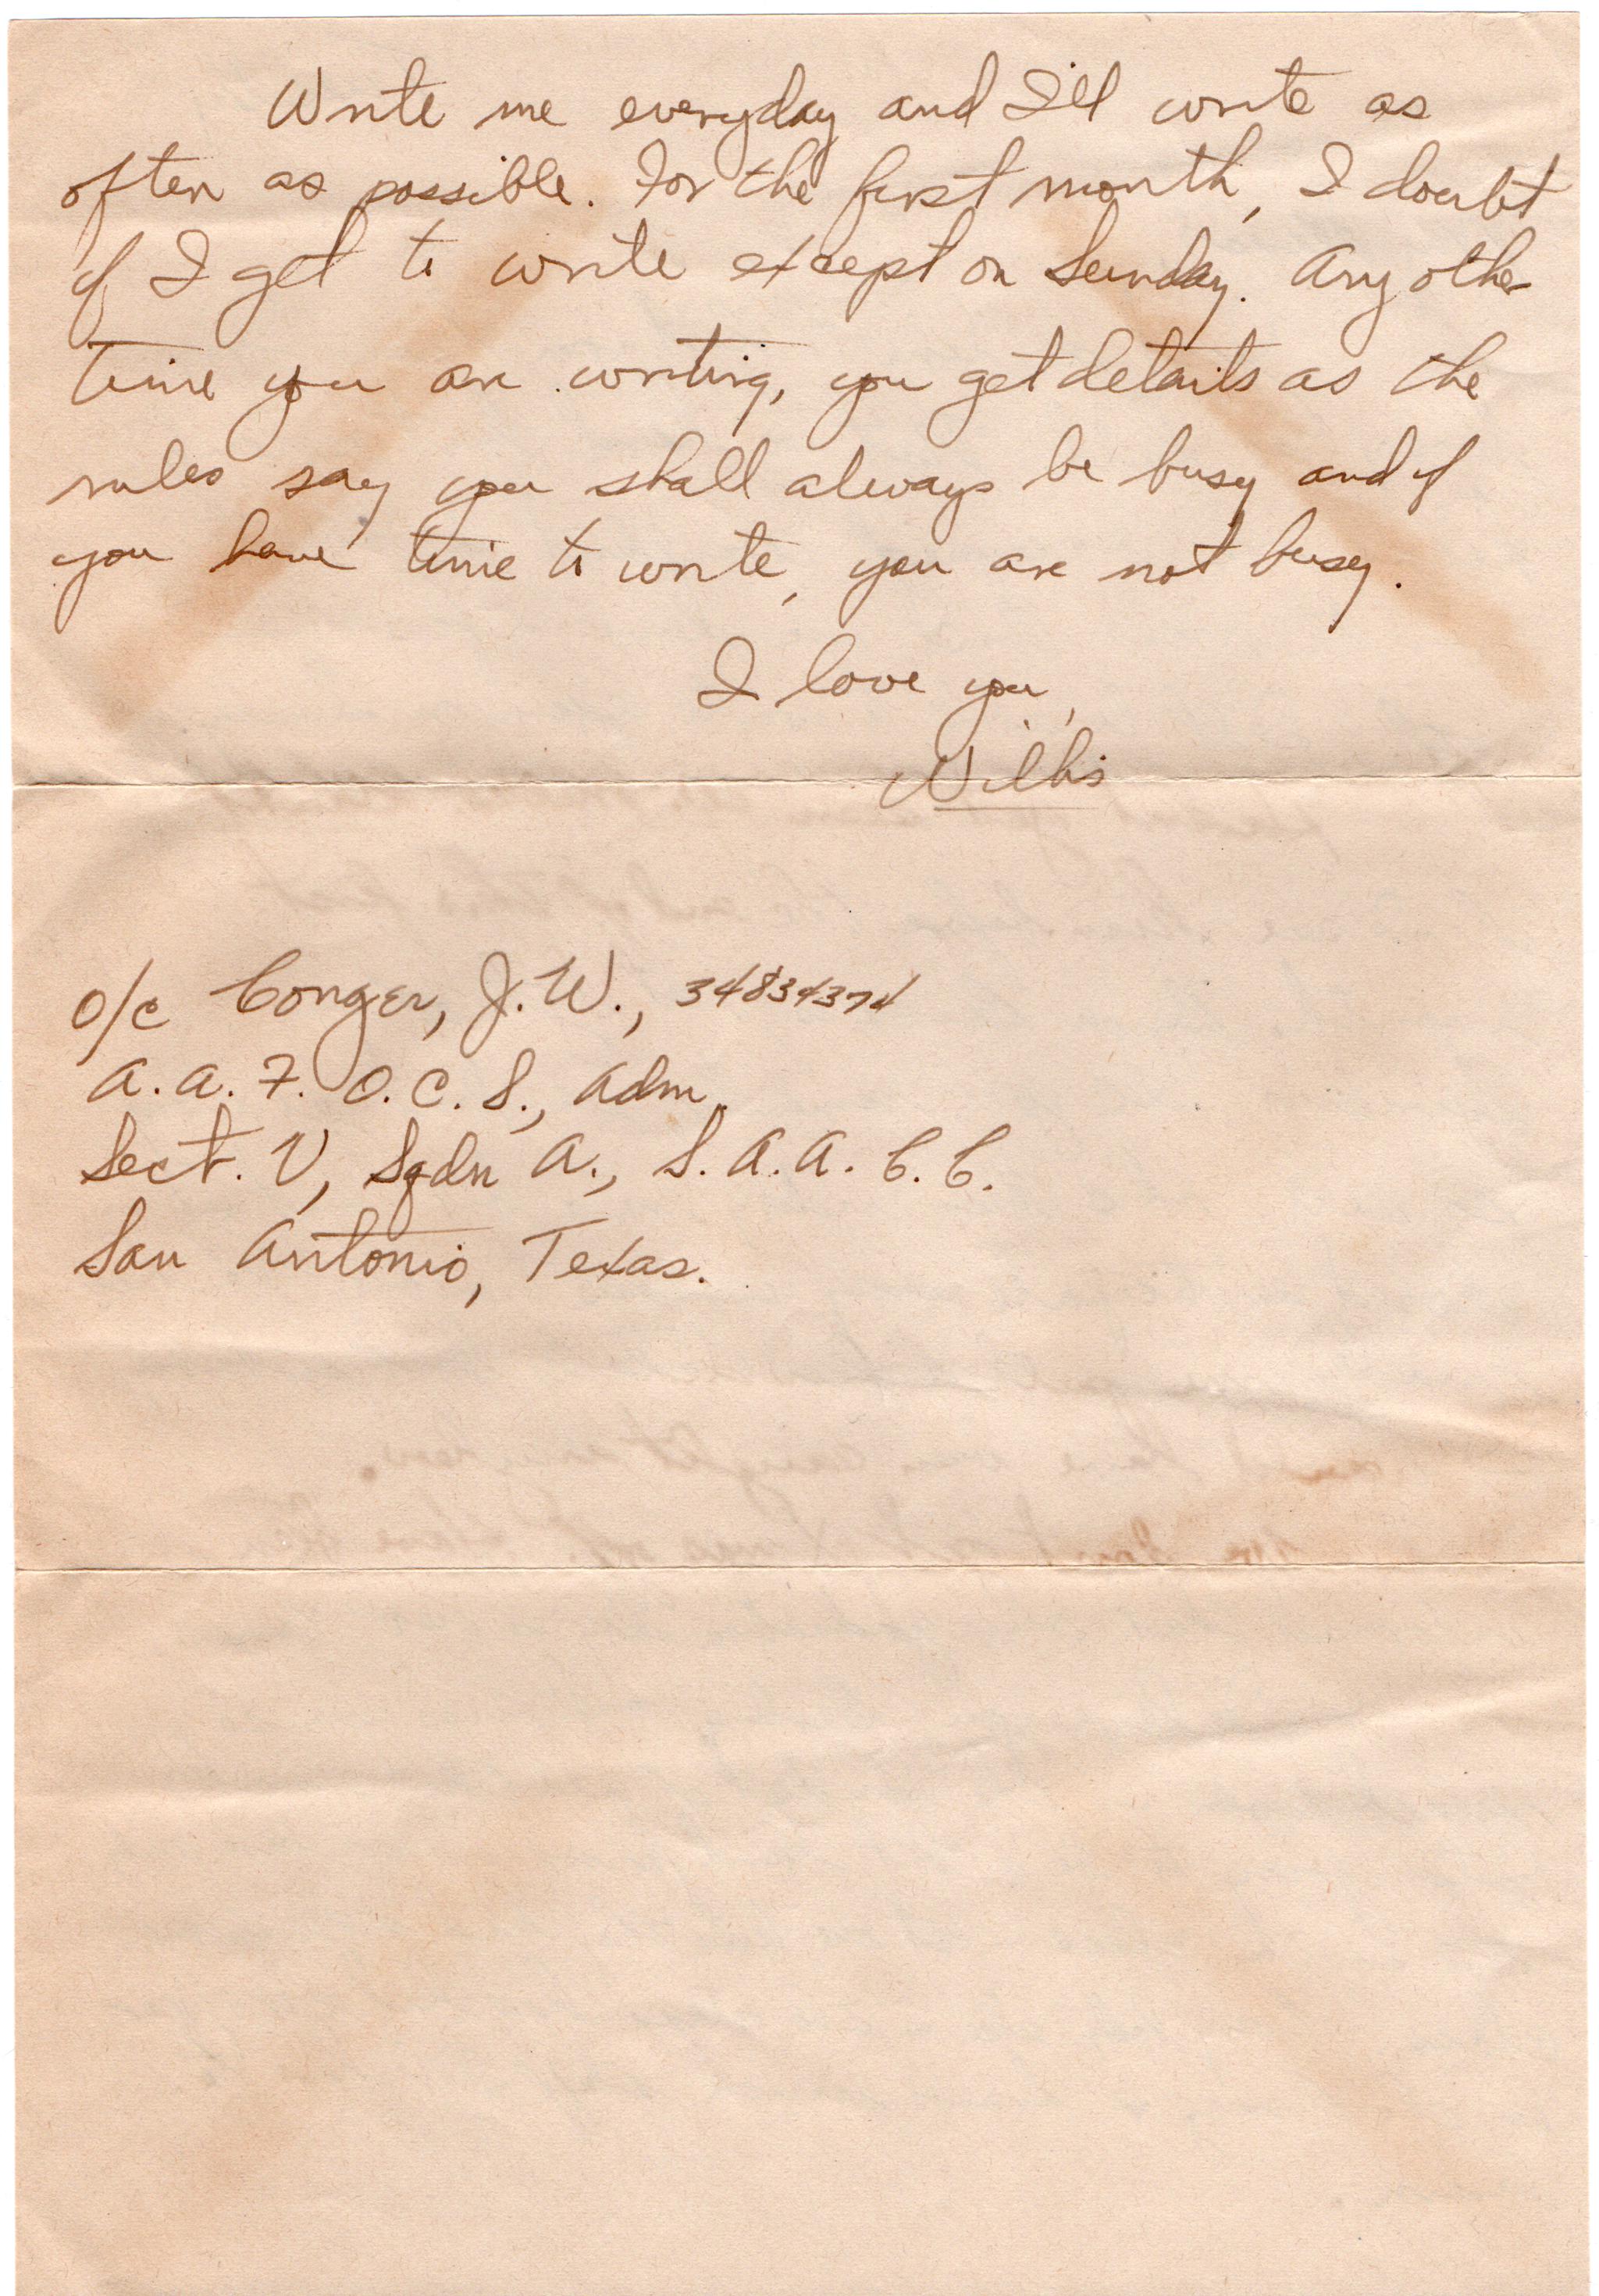 Write me everyday and I'll write as
often as possible. For the first month, I doubt
if I get to write except on Sunday. Any other
time you are writing, you get details as the
rules say you shall always be busy and if
you have time to write, you are not busy.
I love you,
Willis
O/C Conger, J.W., 34834374
A.A.F. O.C.S., Adm.
Sect. V, Sqdn A., S.A.A.C.C.
San Antonio, Texas.